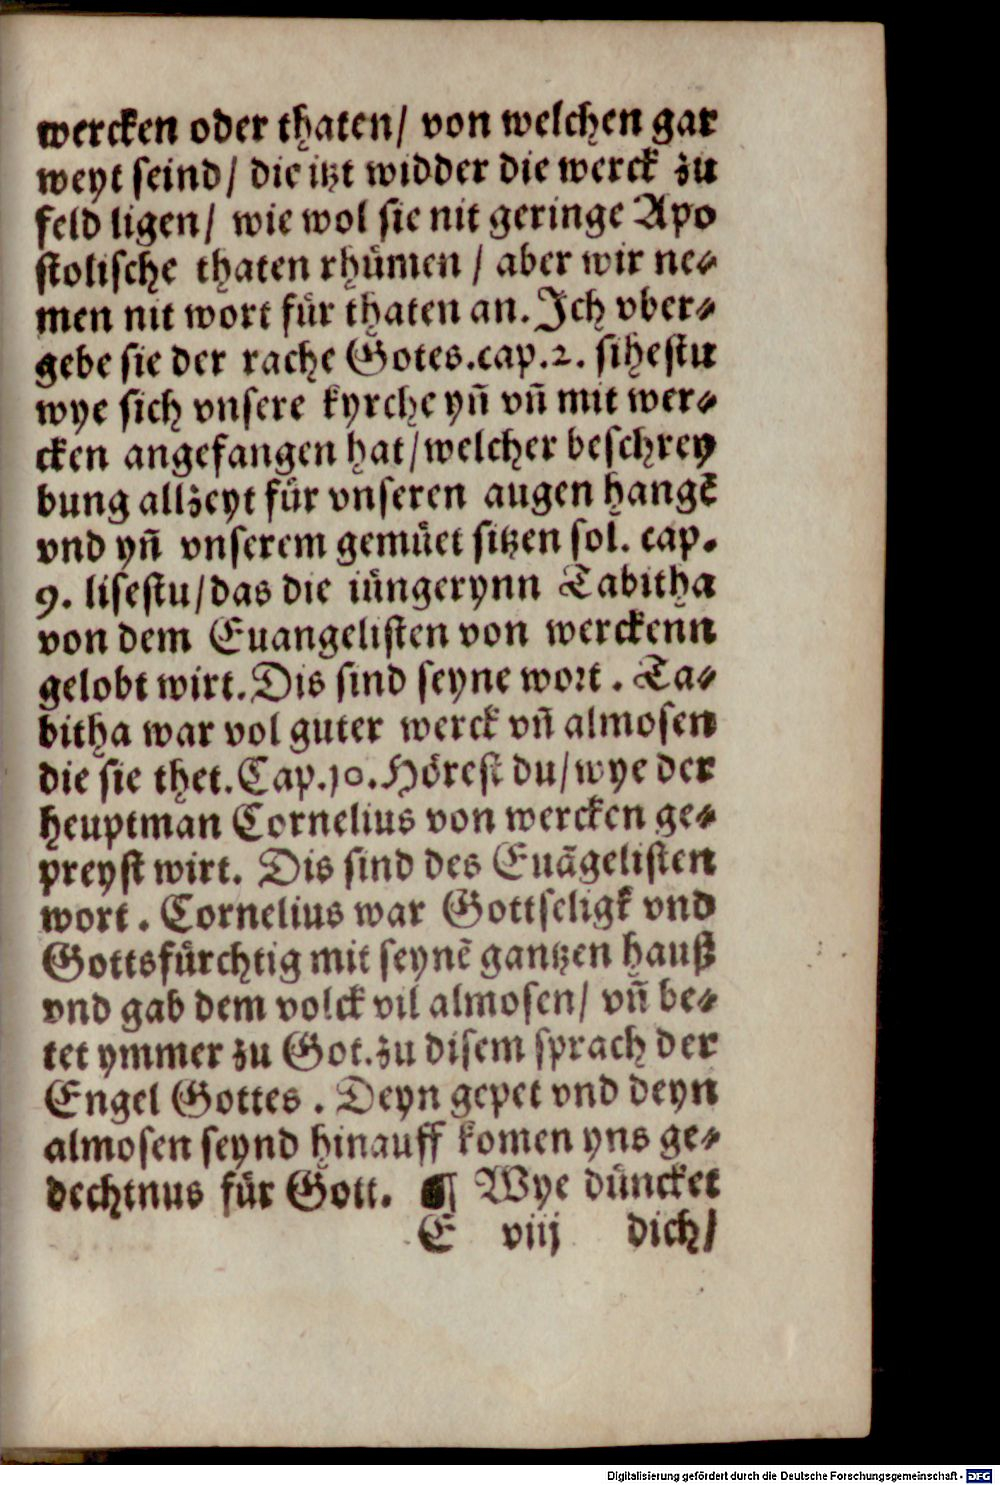 wercken oder thaten/ von welchen gar
weyt seind/ die itzt widder die werck zu
feld ligen/ wie wol sie nit geringe Apo
stolische thaten rhümen / aber wir ne⸗
men nit wort für thaten an. Jch vber⸗
gebe sie der rache Gotes.cap.2. sihestu
wye sich vnsere kyrche yn̄ vn̄ mit wer⸗
cken angefangen hat/welcher beschrey
bung allzeyt für vnseren augen hangē
vnd yn̄ vnserem gemüet sitzen sol. cap.
9. lisestu/das die iüngerynn Tabitha
von dem Euangelisten von werckenn
gelobt wirt. Dis sind seyne wort . Ta⸗
bitha war vol guter werck vn̄ almosen
die sie thet. Cap.10. Hörest du/wye der
heuptman Cornelius von wercken ge⸗
preyst wirt. Dis sind des Euāgelisten
wort . Cornelius war Gottseligk vnd
Gottsfürchtig mit seynē gantzen hauß
vnd gab dem volck vil almosen/ vn̄ be⸗
tet ymmer zu Got.zu disem sprach der
Engel Gottes . Deyn gepet vnd deyn
almosen seynd hinauff komen yns ge⸗
dechtnus für Gott. ¶ Wye düncket
E viij dich/
Digitalisierung gefördert durch die Deutsche Forschungsgemeinschaft - DFG